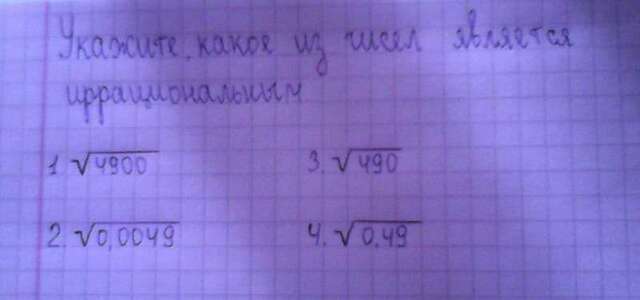 Укажите, какое из чисел является
иррациональным
1. √4900 3. √490
2. √0,0049 4. √0,49